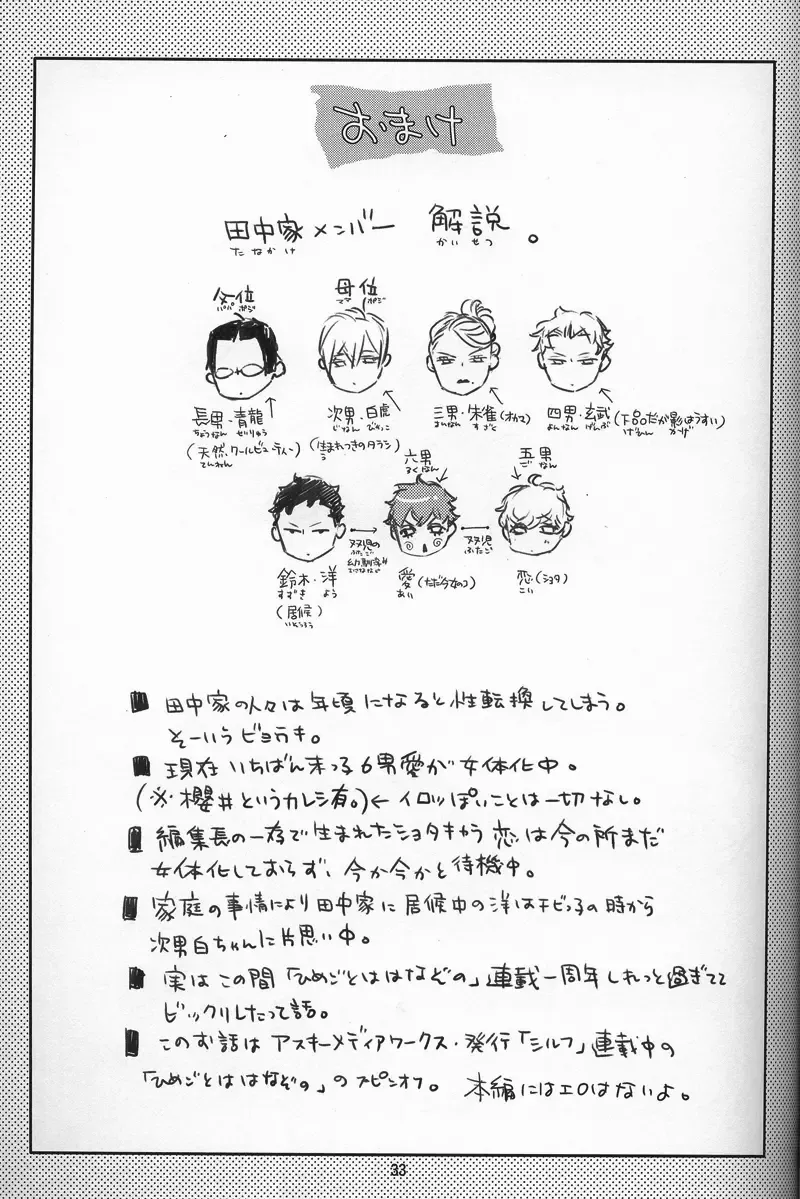 おまけ
田中家メンバー 解説。
たなかけ かいせつ
父位 母位
パパポジ ママポジ
長男・青龍 次男・白虎 三男・朱雀(オカマ) 四男・玄武(下品だが影はうすい)
ちょうなん せいりゅう じなん びゃっこ さんなん すざく よんなん げんぶ げひん かげ
(天然、クールビューティー) (生まれつきのタラシ)
てんねん う
六男 五男
ろくなん ごなん
双児の幼馴染 双児
ふたご おさななじみ ふたご
鈴木・洋 愛(ただ今女のコ) 恋(ショタ)
すずき よう あい こい
(居候)
いそうろう
■ 田中家の人々は年頃になると性転換してしまう。
そーいうビョウキ。
■ 現在いちばん末っ子6男愛が女体化中。
(※・櫻井というカレシ有。)←イロッぽいことは一切なし。
■ 編集長の一存で生まれたショタキャラ恋は今の所まだ
女体化しておらず、今か今かと待機中。
■ 家庭の事情により田中家に居候中の洋はチビっ子の時から
次男白ちゃんに片思い中。
■ 実はこの間「ひめごとははなぞの」連載一周年しれっと過ぎてて
ビックリしたって話。
■ このお話はアスキーメディアワークス・発行「シルフ」連載中の
「ひめごとははなぞの」のスピンオフ。 本編にはエロはないよ。
33